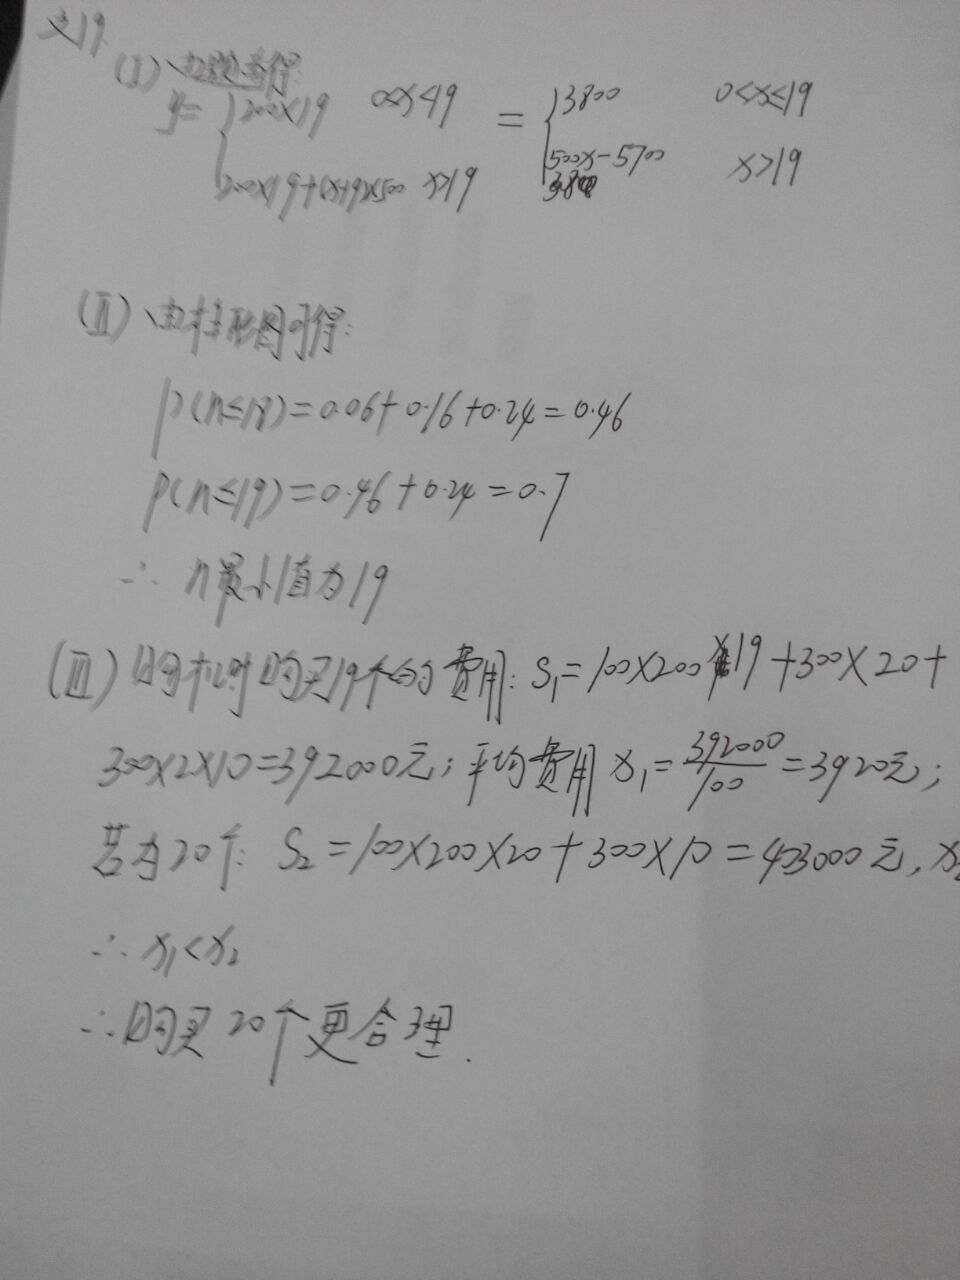 文19.
(I) 由题意得:
y= { 200×19 0<x≤19 = { 3800 0<x≤19
200×19+(x-19)×500 x>19 500x-5700 x>19
(II) 由柱形图可得:
P(n≤18)=0.06+0.16+0.24=0.46
P(n≤19)=0.46+0.24=0.7
∴ n最小值为19
(III) 购机时购买19个的费用: S₁=100×200×19+300×20+
300×2×10=392000元; 平均费用 x₁=392000/100=3920元;
若为20个: S₂=100×200×20+300×10=403000元, x₂
∴ x₁<x₂
∴购买20个更合理.